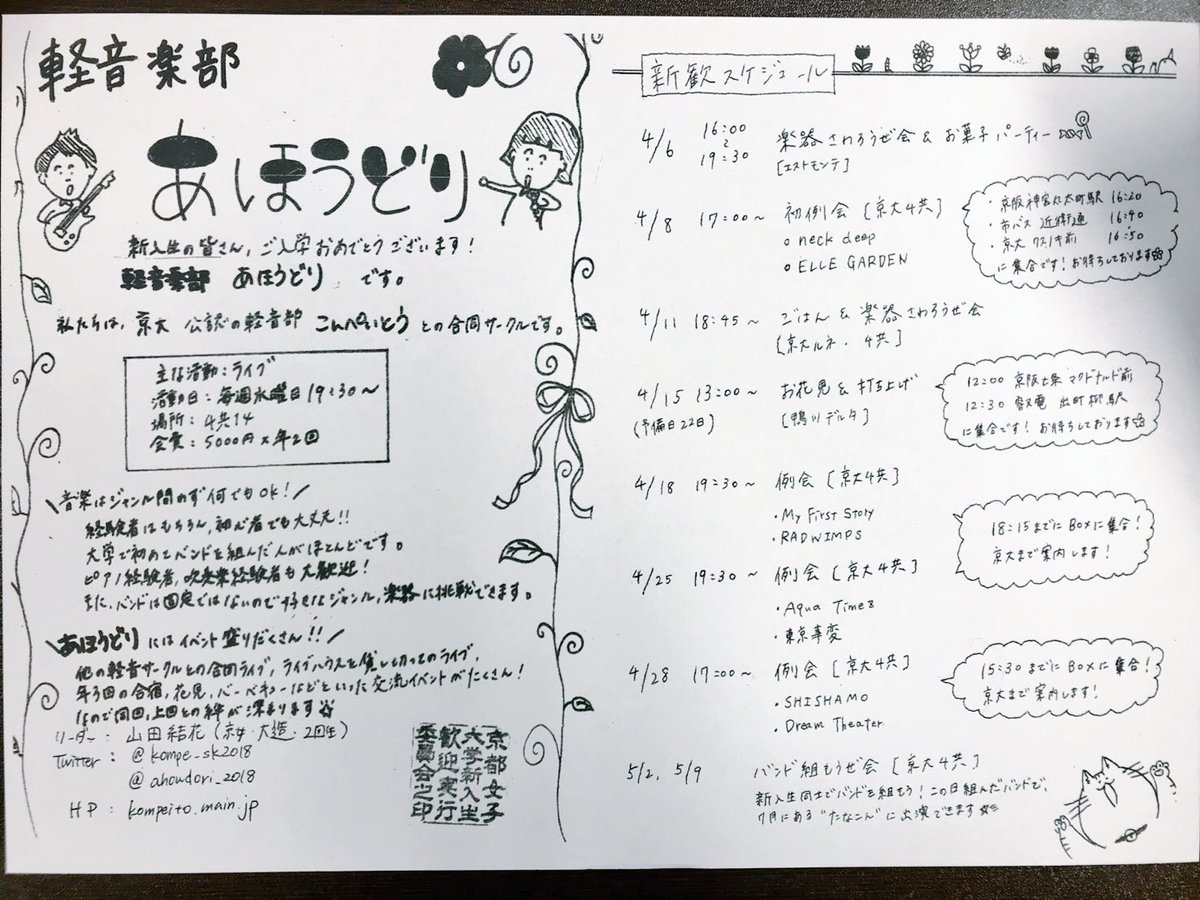 軽音楽部
あほうどり
新入生の皆さん、ご入学おめでとうございます！
軽音楽部 あほうどり です。
私たちは、京大 公認の軽音部 こんぺいとう との合同サークルです。
主な活動：ライブ
活動日：毎週水曜日19:30～
場所：4共14
会費：5000円×年2回
\音楽はジャンル問わず何でもOK！/
経験者はもちろん、初心者でも大丈夫!!
大学で初めてバンドを組んだ人がほとんどです。
ピアノ経験者、吹奏楽経験者も大歓迎！
また、バンドは固定ではないので好きなジャンル、楽器に挑戦できます。
\あほうどりにはイベント盛りだくさん!!/
他の軽音サークルとの合同ライブ、ライブハウスを貸し切ってのライブ、
年3回の合宿、花見、バーベキューなどといった交流イベントがたくさん！
なので同回、上回との絆が深まります
リーダー：山田結花（京女・大造・2回生）
Twitter：@kompe_sk2018
@ahoudori_2018
HP：kompeito.main.jp
京都女子
大学新入生
歓迎実行
委員会之印
新歓スケジュール
4/6 16:00～19:30 楽器さわろうぜ会 & お菓子パーティー
[エストモンテ]
4/8 17:00～ 初例会［京大4共］
・neck deep
・ELLE GARDEN
・京阪神宮丸太町駅 16:20
・市バス 近衛通 16:40
・京大 クスノキ前 16:50
に集合です！お待ちしております
4/11 18:45～ ごはん & 楽器さわろうぜ会
［京大ルネ・4共］
4/15 13:00～ お花見 & 打ち上げ
(予備日22日) ［鴨川デルタ］
12:00 京阪七条 マクドナルド前
12:30 叡電 出町柳駅
に集合です！お待ちしております
4/18 19:30～ 例会［京大4共］
・My First Story
・RADWIMPS
18:15までにBoxに集合！
京大まで案内します！
4/25 19:30～ 例会［京大4共］
・Aqua Timez
・東京事変
4/28 17:00～ 例会［京大4共］
・SHISHAMO
・Dream Theater
15:30までにBoxに集合！
京大まで案内します！
5/2, 5/9 バンド組もうぜ会［京大4共］
新入生同士でバンドを組もう！この日組んだバンドで、
7月にある"たなこん"に出演できます